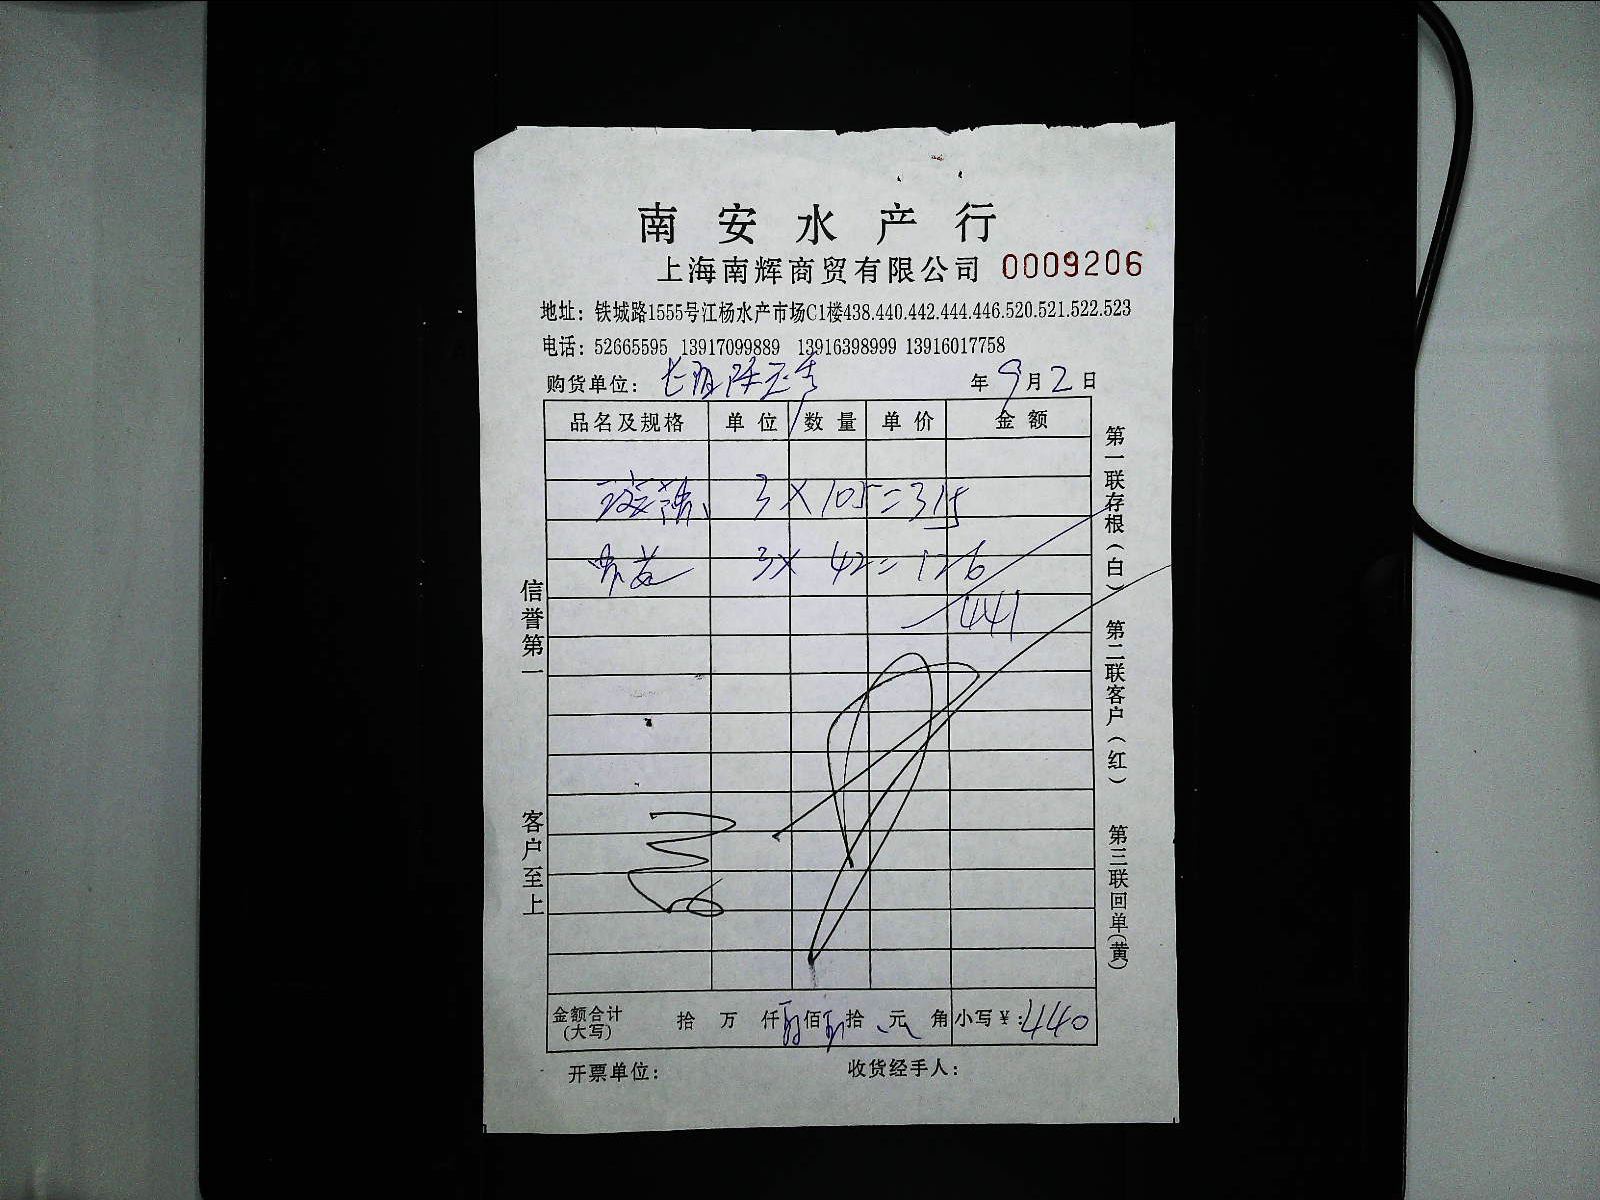 南安水产行
上海南辉商贸有限公司 0009206
地址：铁城路1555号江杨水产市场C1楼438.440.442.444.446.520.521.522.523
电话：52665595 13917099889 13916398999 13916017758
购货单位： 年 9 月 2 日
品名及规格 单位 数量 单价 金额
3 × 105 = 315
3 × 42 = 126
441
金额合计(大写) 拾 万 仟 肆 佰 肆 拾 元 角 小写￥：440
开票单位： 收货经手人：
信誉第一 客户至上
第一联存根(白) 第二联客户(红) 第三联回单(黄)